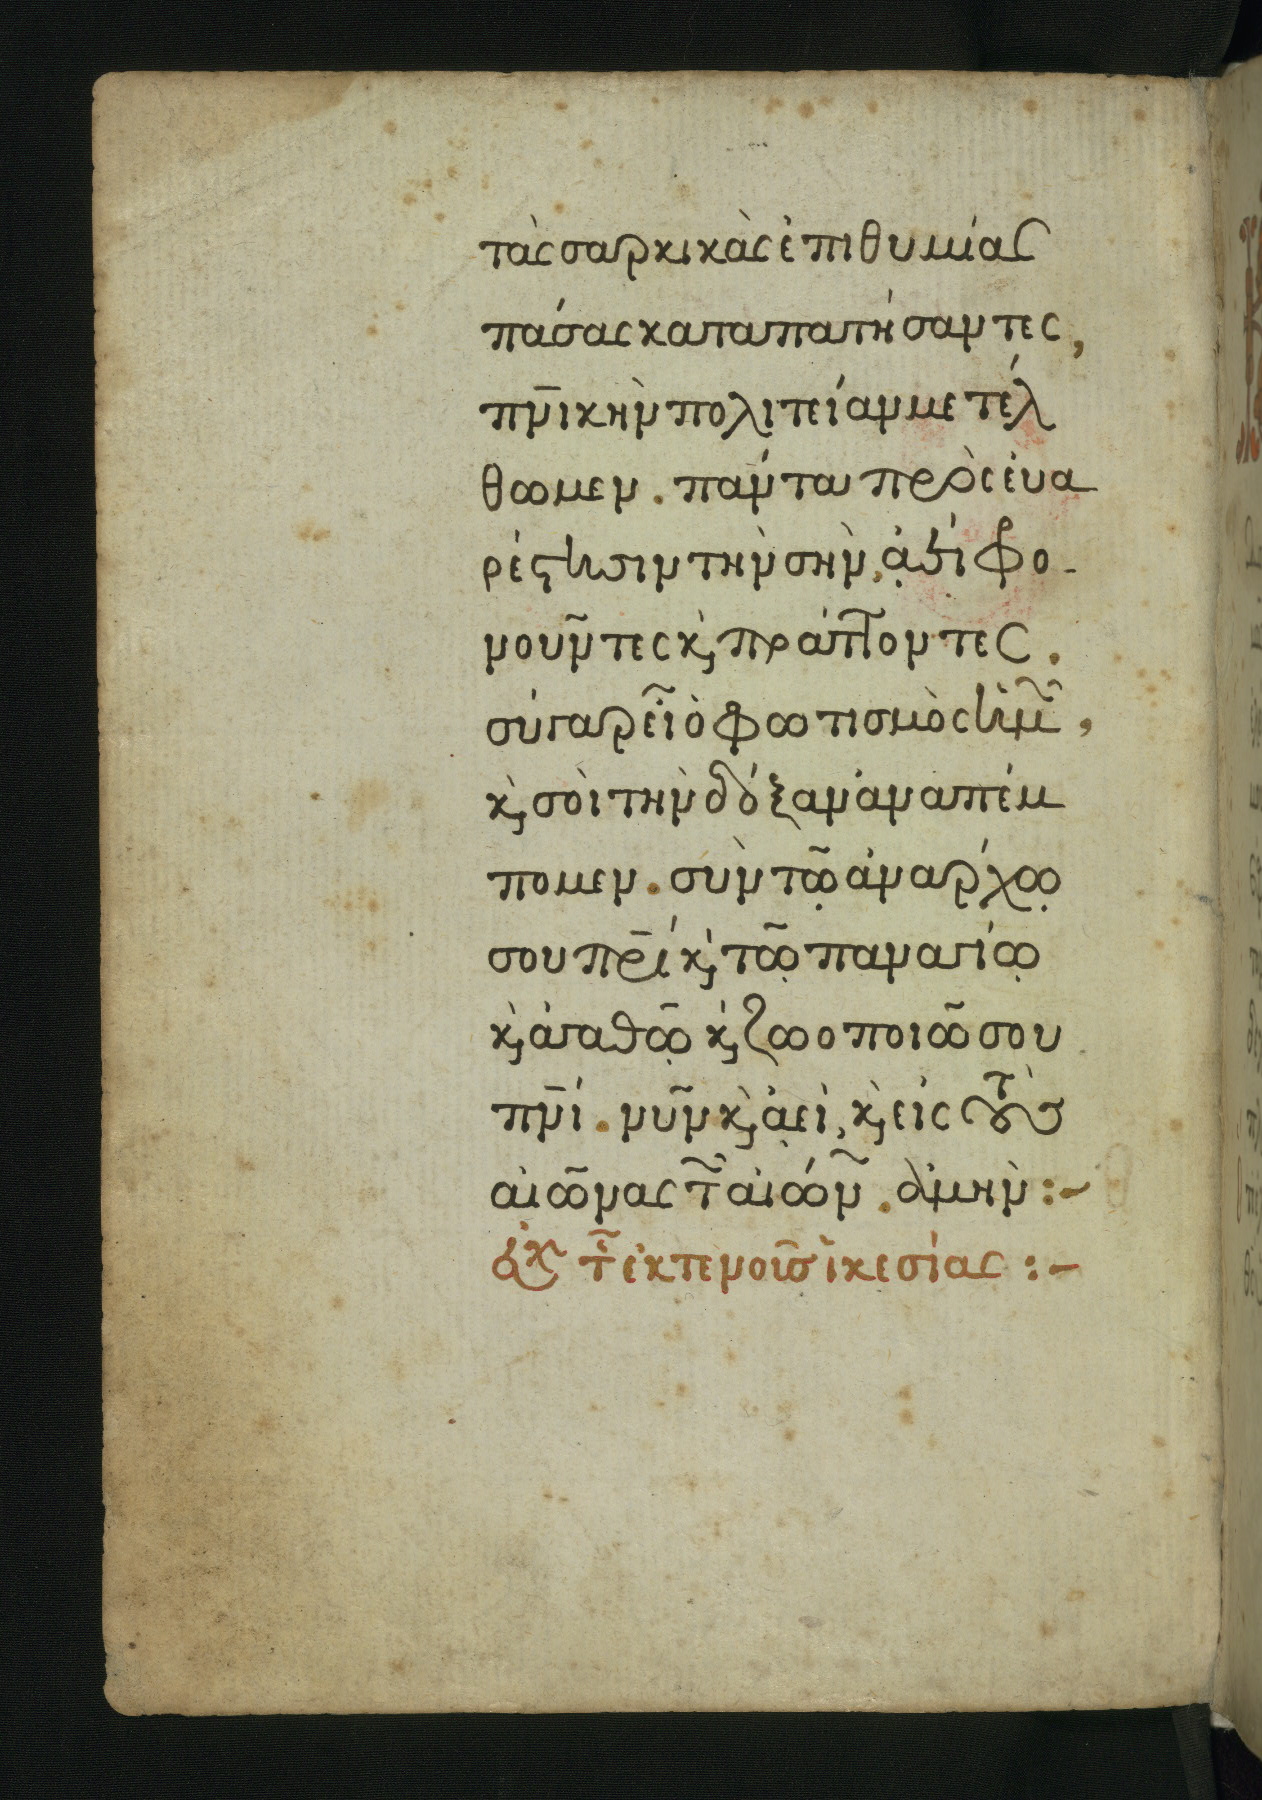 τὰς σαρκικὰς ἐπιθυμίας
πάσας καταπατήσαντες,
πν̅ικὴν πολιτείαν μετέλ
θωμεν. πάντα πρὸς εὐα
ρέστησιν τὴν σὴν, ᾀεὶ φρο-
νοῦντες κ̀ πράττοντες.
σὺ γὰρ εἶ ὁ φωτισμὸς ἡμ῀,
κ̀ σοὶ τὴν δόξαν ἀναπέμ
πομεν. σὺν τῷ ἀνάρχῳ
σου πρ̅ί κ̀ τῷ παναγίῳ
κ̀ ἀγαθῷ κ̀ ζωοποιῶ σου
πν̅ί. νῦν κ̀ ᾀεὶ, κ̀ εἰς τοὺς
αἰῶνας τ῀ αἰών῀. ἀμήν :-
εὐχ τ῀ ἐκτενοῦσ ἱκεσίας :-